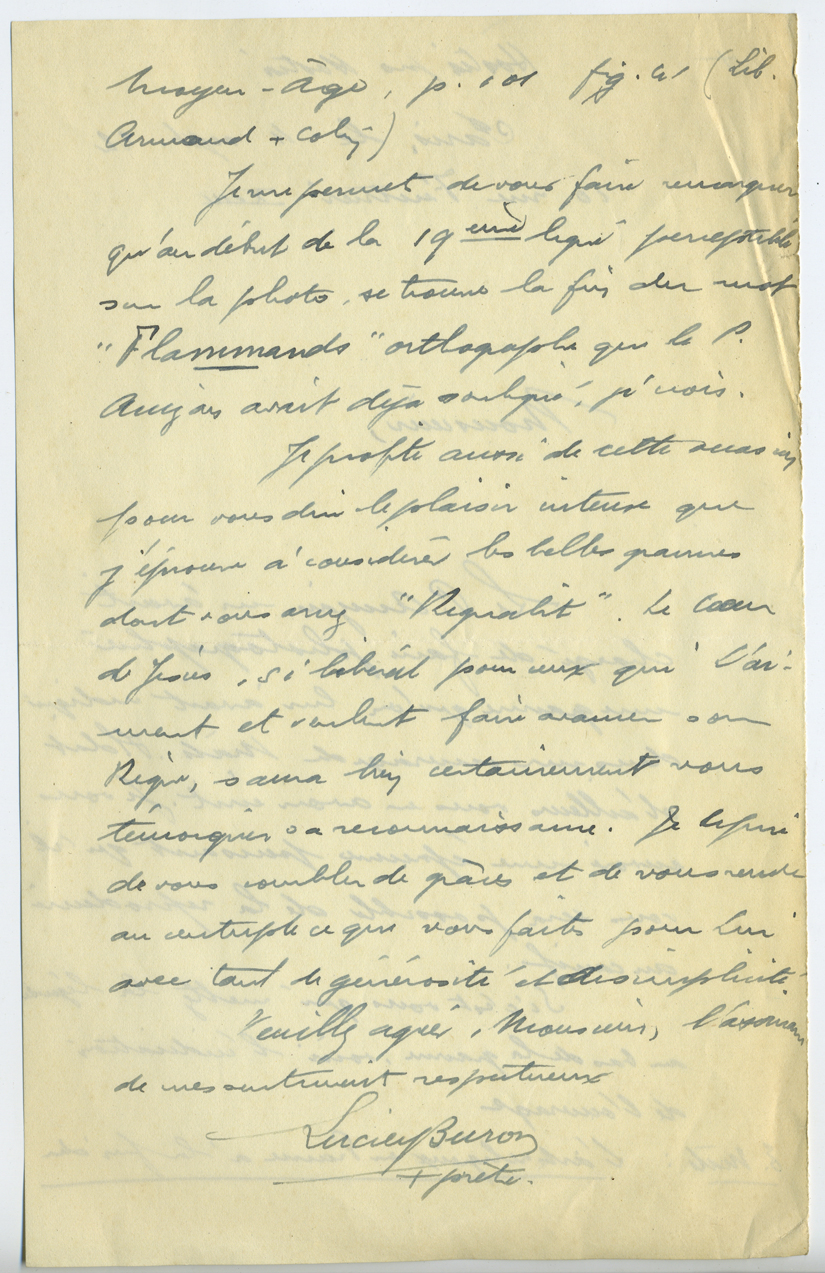 Moyen-Âge, p. 101 fig. 41 (Lib.
Armand + Colin)
Je me permet de vous faire remarquer
qu'au début de la 19 eme ligne perceptible
sur la photo, se trouve la fin du mot
"Flammands" orthographe que le P.
avait déjà souligné, je crois.
Je profite aussi de cette occasion
pour vous dire le plaisir intense que
j'éprouve à considérer les belles gravures
dont vous avez "Regnabit". Le Cœur
de Jésus, si libéral pour ceux qui L'ai-
ment et veulent faire avancer son
Règne, saura bien certainement vous
témoigner sa reconnaissance. Je Le prie
de vous combler de grâces et de vous rendre
au centuple ce que vous faites pour Lui
avec tant de générosité et de simplicité.
Veuillez agréer, Monsieur, l'assurance
de mes sentiments respectueux
Lucien Buron
+ prêtre.